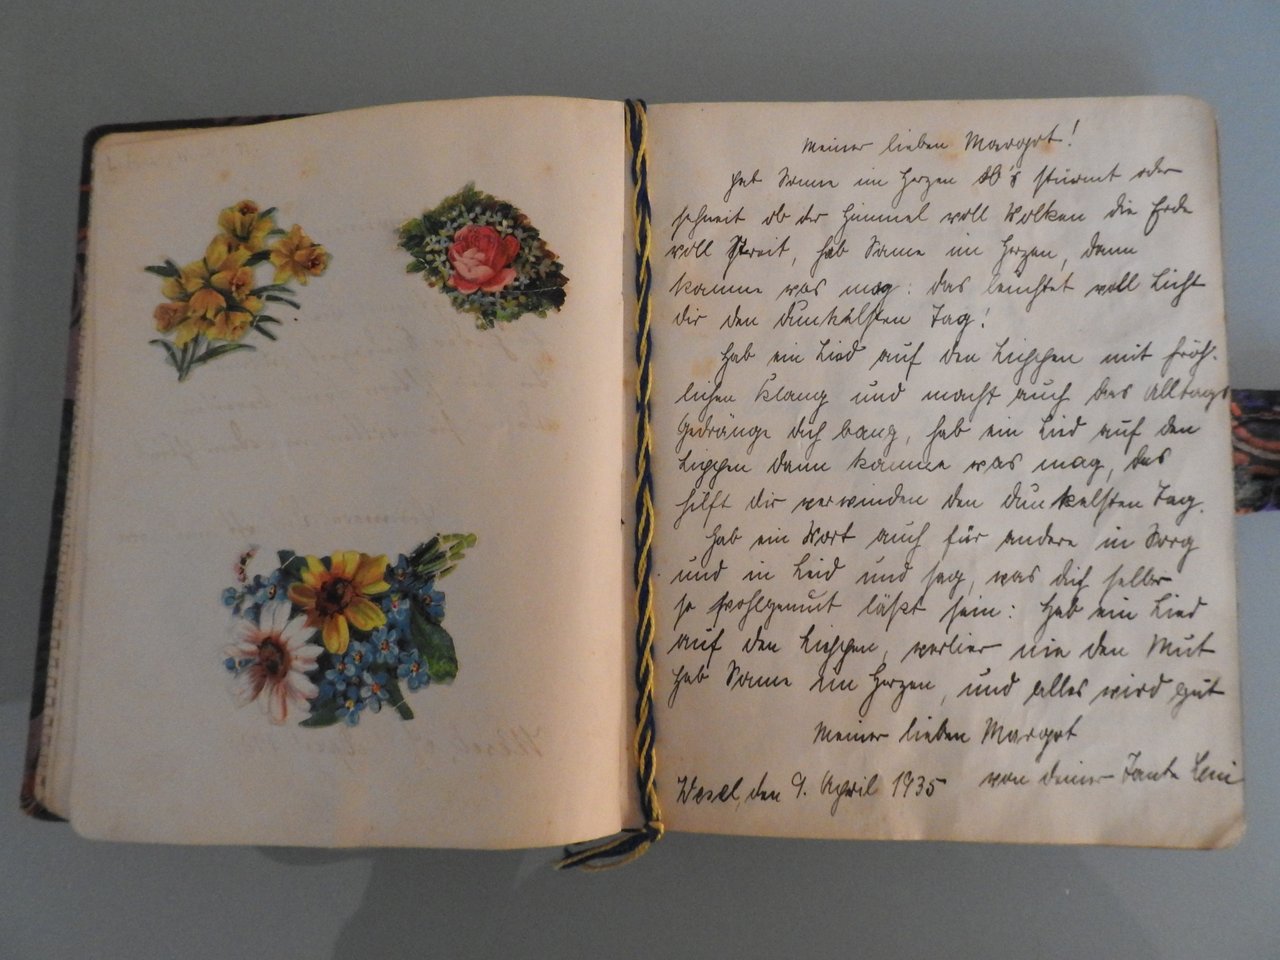 Meiner lieben Margot!
Hab Sonne im Herzen ob's stürmt oder
schneit ob der Himmel voll Wolken die Erde
voll Streit, hab Sonne im Herzen, dann
komme was mag: das leuchtet voll Licht
dir den dunkelsten Tag!
Hab ein Lied auf den Lippen mit fröh-
lichen Klang und macht auch des Alltags
Gedränge dich bang, hab ein Lied auf den
Lippen dann komme was mag, das
hilft dir verwinden den dunkelsten Tag.
Hab ein Wort auch für andere in Sorg
und in Leid und sag, was dich selber
so frohgemut läßt sein: Hab ein Lied
auf den Lippen, verlier nie den Mut
hab Sonne im Herzen, und alles wird gut
Meiner lieben Margot
Wesel, den 9. April 1935 von deiner Tante Leni